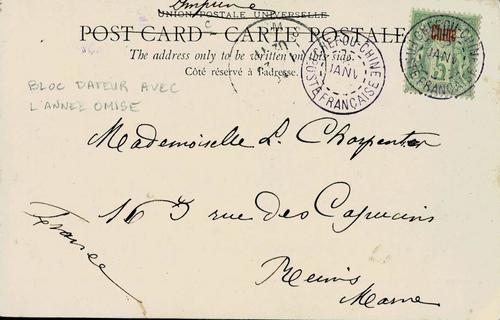 UNION POSTALE UNIVERSELLE
POST CARD - CARTE POSTALE
The address only to be written on this side.
Côté réservé à l'adresse.
TCHEFOU-CHINE
JANV
POSTE FRANÇAISE
Chine
5
TCHEFOU-CHINE
JANV
POSTE FRANÇAISE
BLOC DATEUR AVEC
L'ANNEE OMISE
Mademoiselle L. Charpentier
163 rue des Capucins
Reims
Marne
France